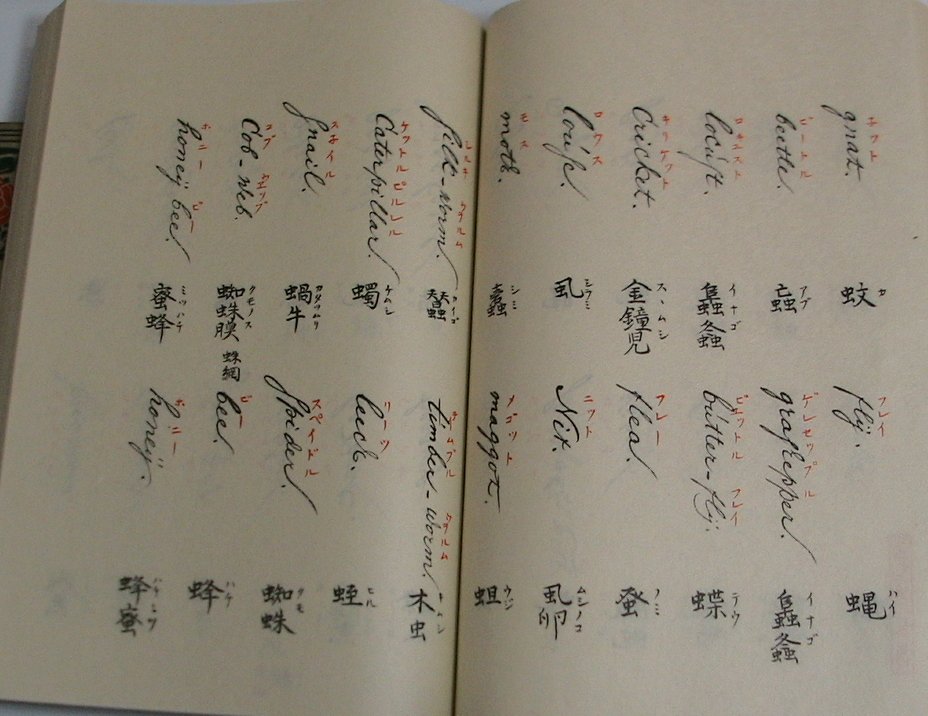 gnat. ナット 蚊 カ flÿ. フレイ 蝿 ハイ
beetle. ビートル 蝱 アブ grashepper. ゲレセップル 蛗螽 イナゴ
locust. ロキュスト 蛗螽 イナゴ butter-flÿ. ビュットル フレイ 蝶 テウ
Cricket. キリッケット 金鐘児 スヽムシ flea. フレー 蚤 ノミ
louse. ロウス 虱 シラミ Nit. ニット 虱卵 ムシノコ
moth. モス 蠧 シミ maggot. メゴット 蛆 ウジ
silk-worm. シルキ ウヲルム 蠶 カイゴ timber-worm. チムブル ウヲルム 木虫
Caterpillar. ケットルピルレル 蠋 ケムシ leech. リーツ 蛭 ヒル
Snail. スネイル 蝸牛 カタツムリ Spider. スペイドル 蜘蛛 クモ
Cob-web. コブ ウェッブ 蜘蛛膜 クモノス 蛛網 bee. ビー 蜂 ハチ
honeÿ bee. ホニー ビー 蜜蜂 ミツハチ honeÿ. ホニー 蜂蜜 ハチミツ